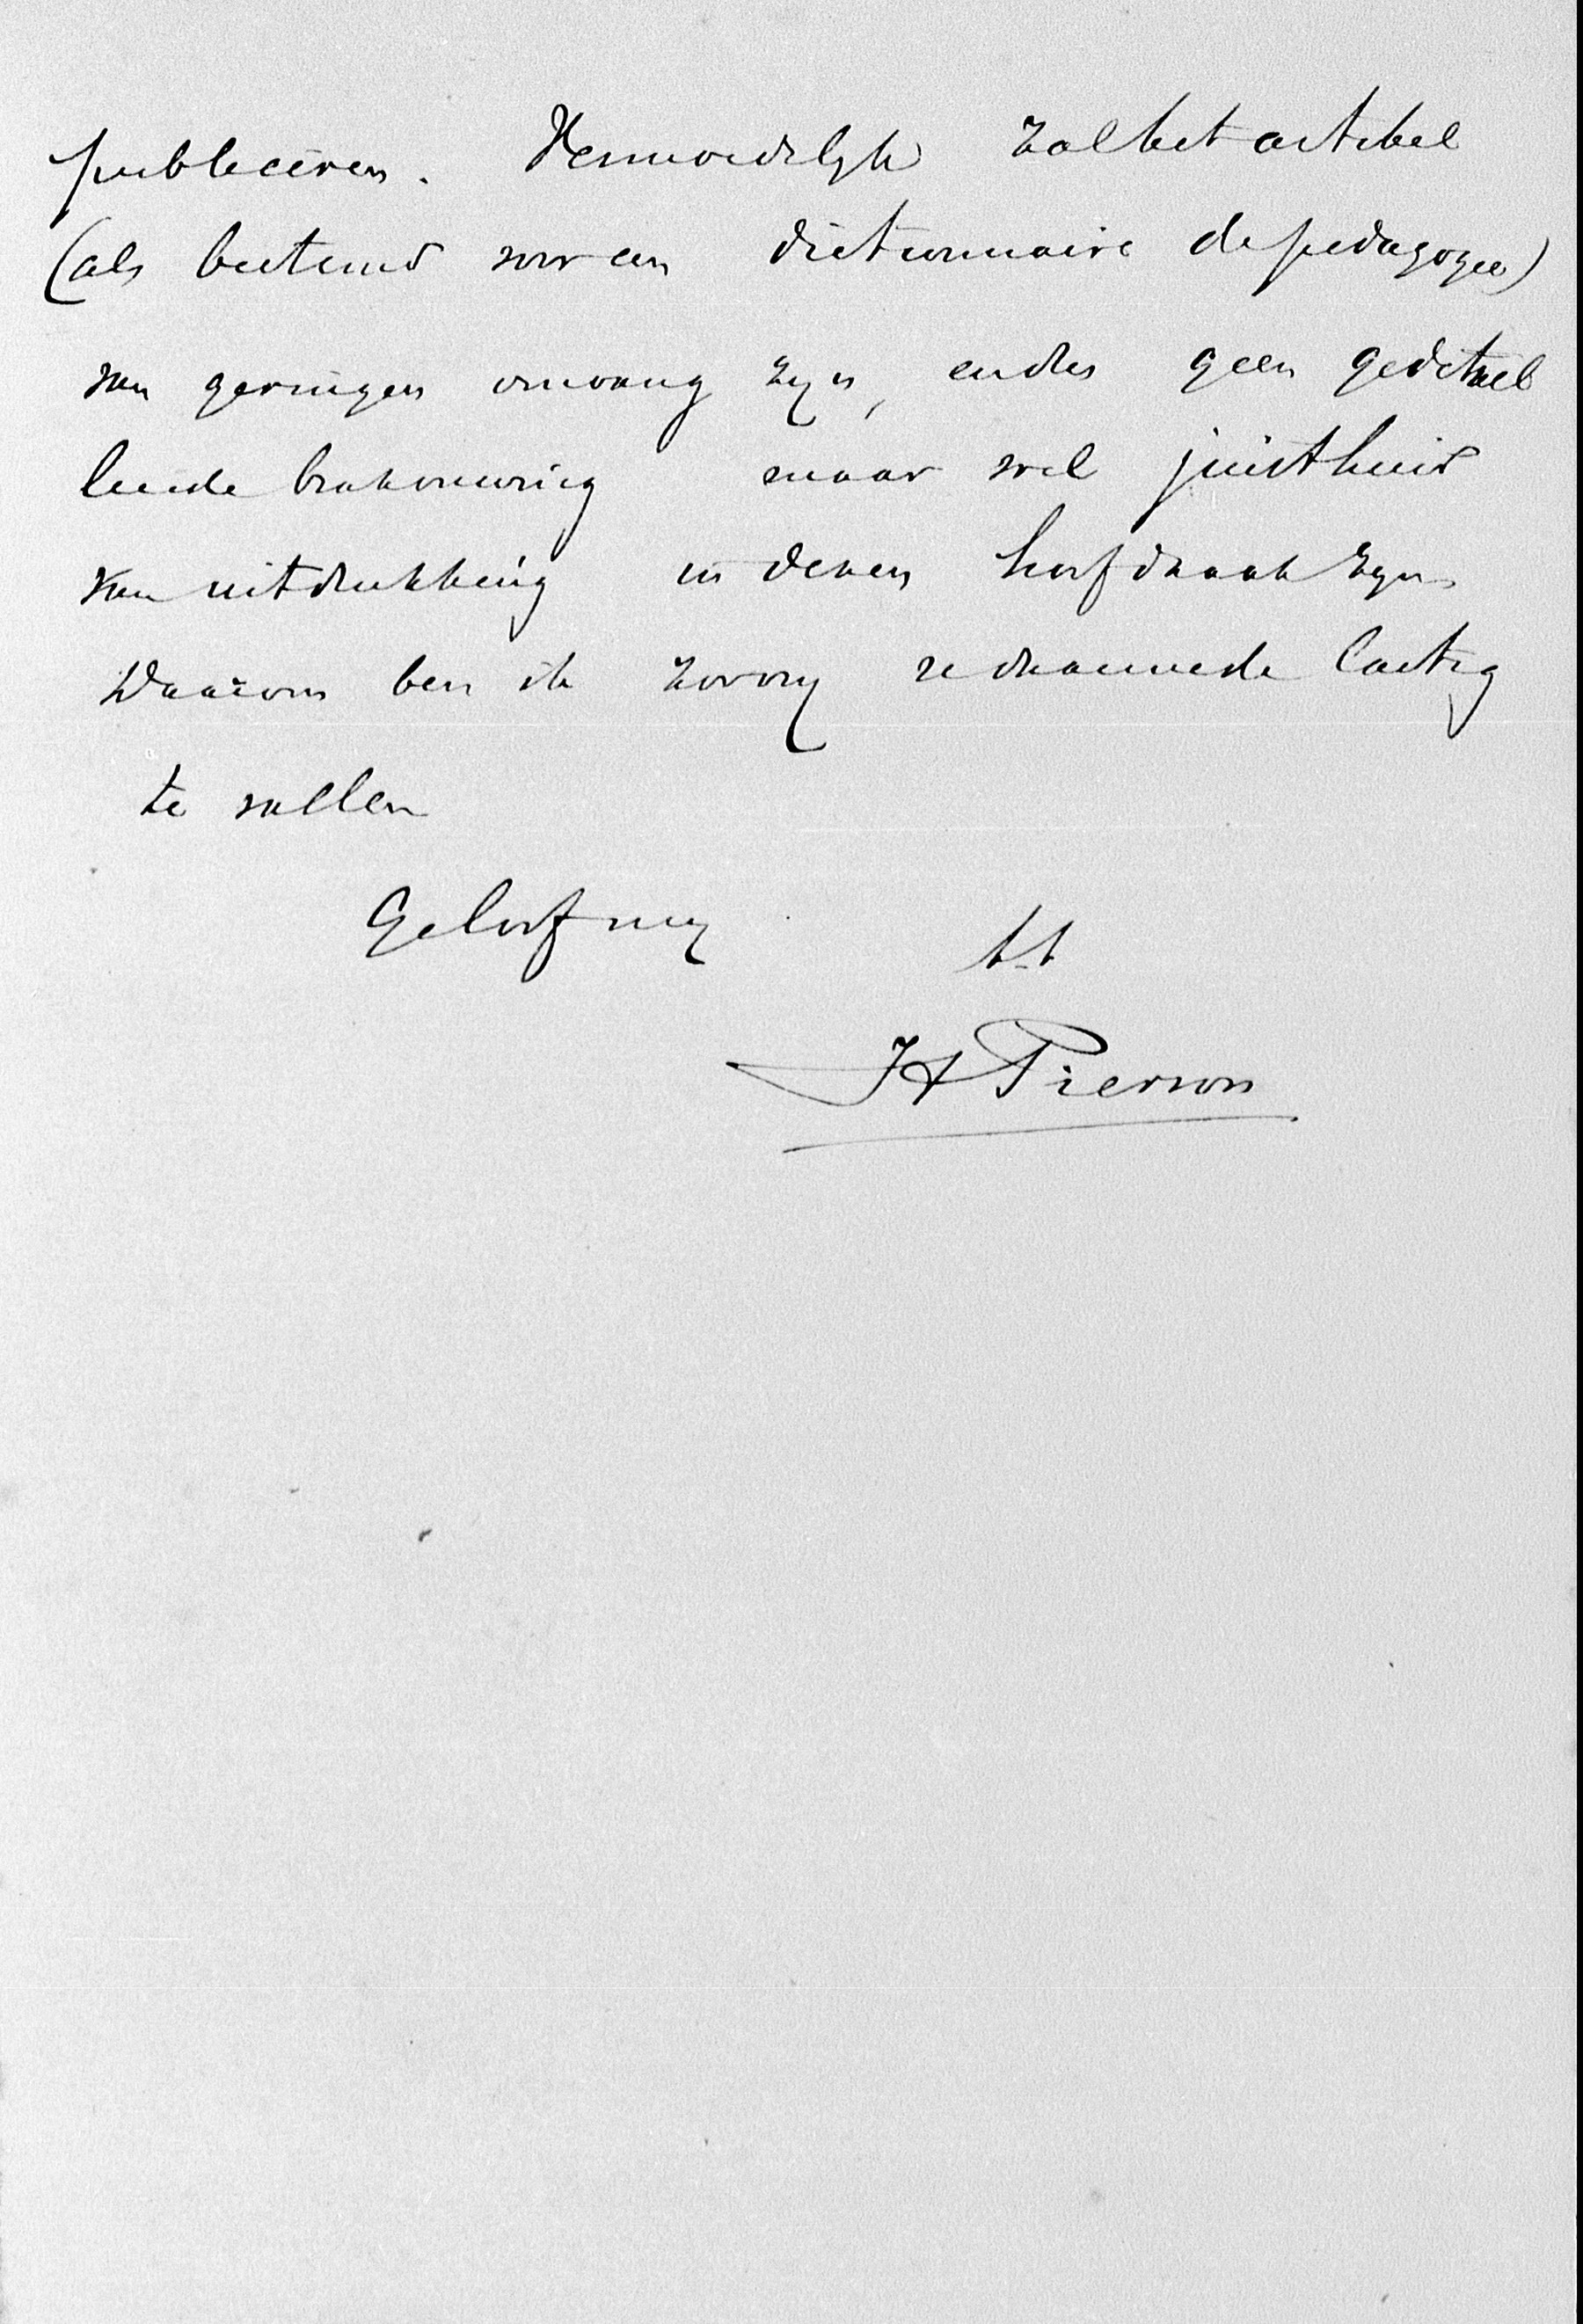 publiceeren. Vermoedelijk zal het artikel
(als bestemd voor een dictionnaire de pedagogie)
van geringen omvang zijn, en dus geen gedetail
leerde beschouwing maar wel juistheid
van uitdrukking in dezen hoofdzaak zijn
Daarom ben ik zoo vrij U daarmede lastig
te vallen
Geloof mij
t.t
HPierson